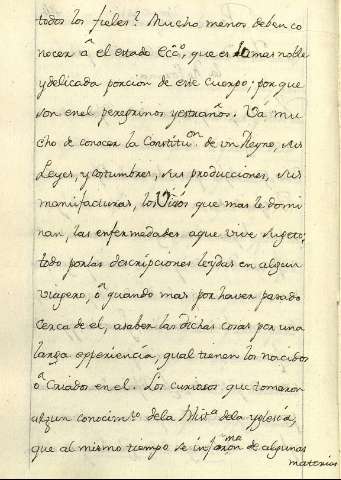 todos los fieles? Mucho menos deben co
nocer â el estado Ecc.º, que es lo mas noble
y delicada porcion de este Cuerpo; por que
son en el peregrinos y estraños. Vá mu
cho de conocer la Constitu.on de un Reyno, sus
Leyes, y costumbres, sus producciones, sus
manifacturas, los Visós que mas le domi
nan, las enfermedades a que vive sugeto,
todo por las descripciones leydas en algun
viagero, ô quando mas por haver pasado
cerca de el, a saber las dichas cosas por una
larga experiencia, qual tienen los nacidos
ô Criados en el. Los curiosos que tomaron
algun conocim.to de la Hist.a de la yglesia,
que al mismo tiempo se informa.me de algunas
materias